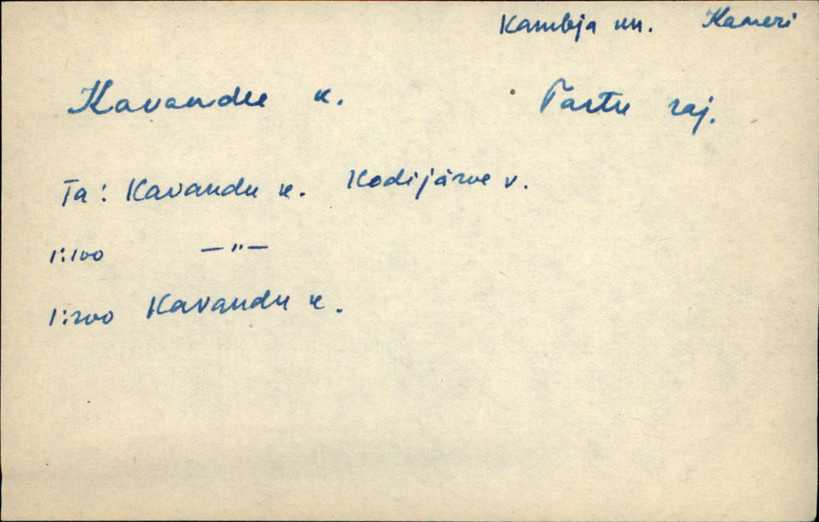 Kambja kn. Kameri
Kavandu k. Tartu raj.
Ta: Kavandu k. Kodijärve v.
1:100 —"—
1:200 Kavandu k.